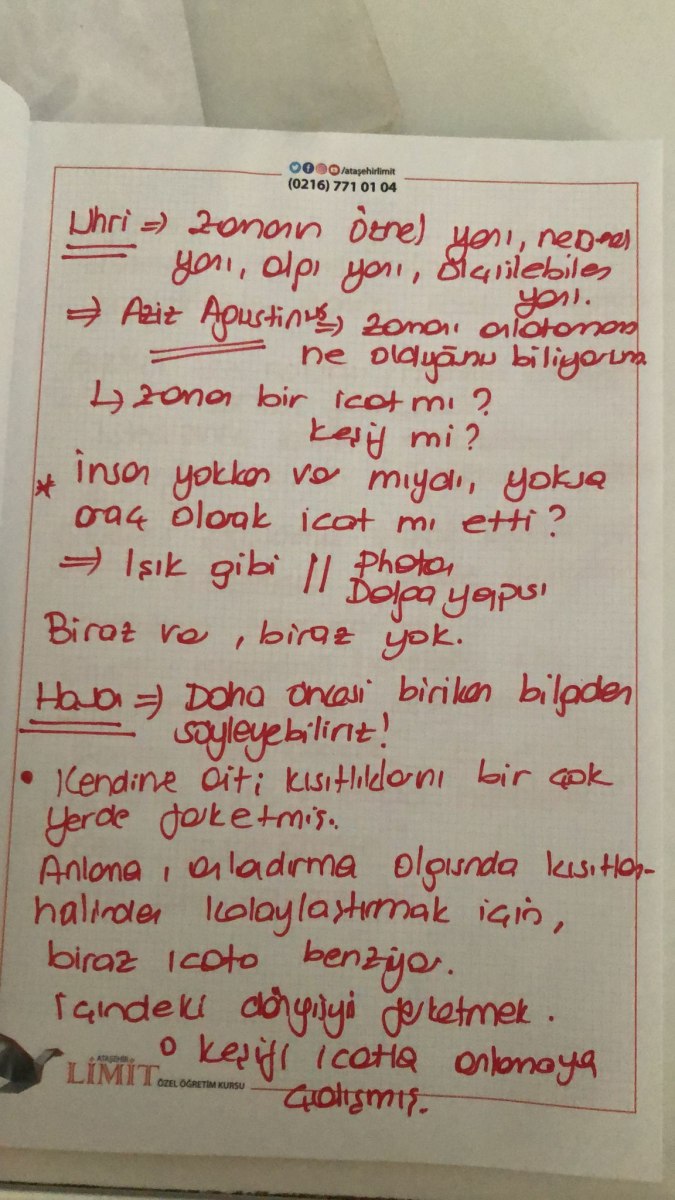 /ataşehirlimit
(0216) 771 01 04
Uhri ⇒ Zamanın öznel yanı, nesnel
yanı, algı yanı, ölçülebilen
yanı.
⇒ Aziz Agustinus ⇒ zamanı anlatamam
ne olduğunu biliyorum
↳ zaman bir icat mı?
keşif mi?
* İnsan yokken var mıydı, yoksa
araç olarak icat mı etti?
⇒ Işık gibi // Photon
Dalga yapısı
Biraz var, biraz yok.
⇒ Daha öncesi biriken bilgiden
söyleyebiliriz!
• Kendine ait kısıtlıklarını bir çok
yerde farketmiş.
Anlama, anladırma olgısında kısıtlan-
halinden kolaylaştırmak için,
biraz icata benziyor.
İçindeki döngüyü farketmek.
o keşifi icatla anlamaya
çalışmış.
ATAŞEHİR
LİMİT
ÖZEL ÖĞRETİM KURSU